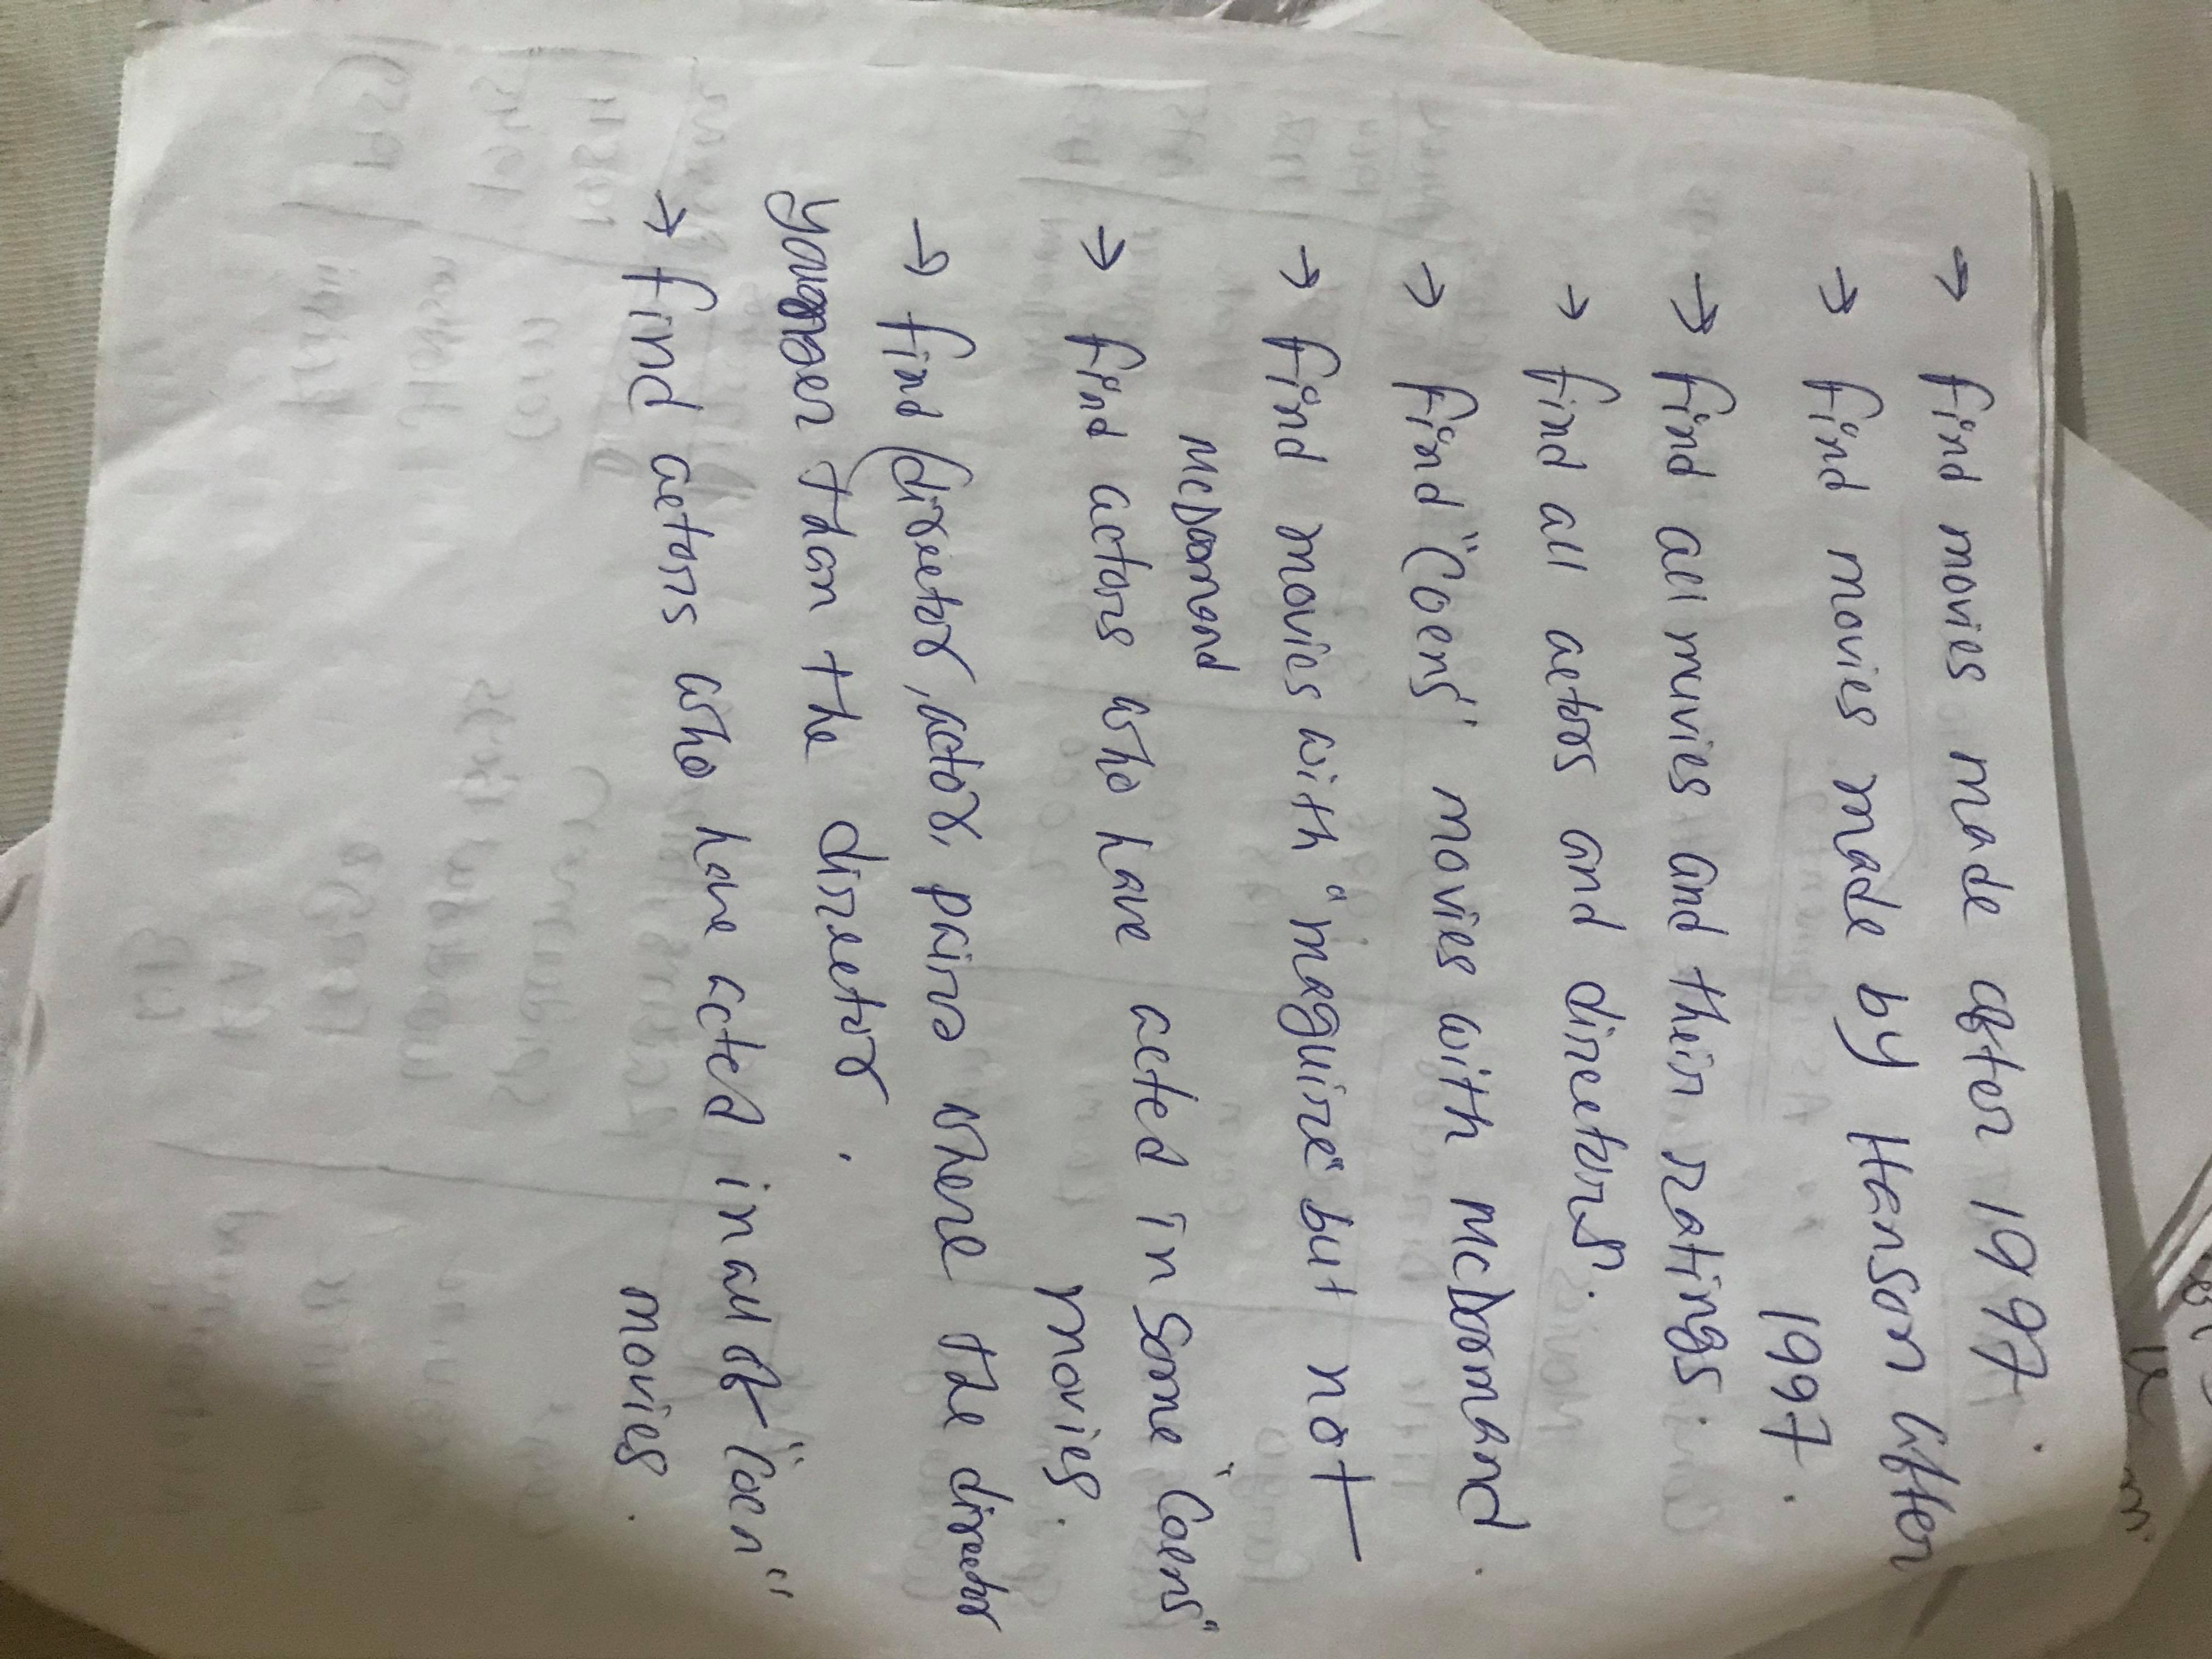 → find movies made after 1997.
→ find movies made by Hanson after
1997.
→ find all muvies and their ratings.
→ find all actors and directors.
→ find "Coens" movies with McDormand.
→ find movies with "maguire" but not
McDormand
→ find actors who have acted in some "Coens"
movies.
→ find (director, actor, pairs where the director
younger than the director.
→ find actors who have acted in all of "Coen"
movies.